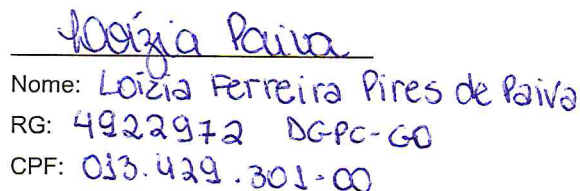 Loízia Paiva
Nome: Loizia Ferreira Pires de Paiva
RG: 4922972 DGPC-GO
CPF: 013.429.301-00